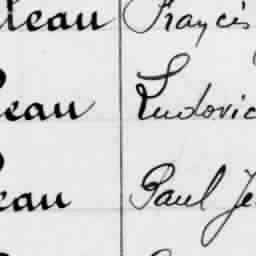 leau Francis
eau Ludovic
eau Paul Je